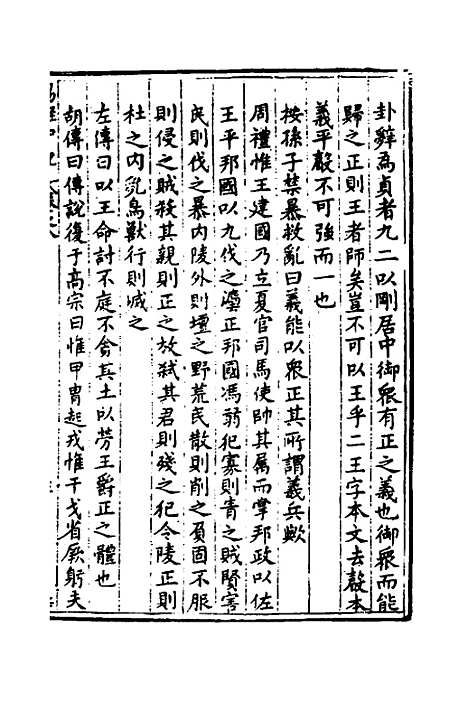 卦辭為貞者九二以剛居中御眾有正之義也御眾而能
歸之正則王者師矣豈不可以王乎二王字本文去聲本
義平聲不可強而一也
按孫子禁暴救亂曰義能以眾正其所謂義兵歟
周禮惟王建國乃立夏官司馬使帥其属而掌邦政以佐
王平邦國以九伐之灋正邦國馮弱犯寡則眚之賊賢害
民則伐之暴内陵外則壇之野荒民散則削之負固不服
則侵之賊殺其親則正之放弑其君則殘之犯令陵正則
杜之内亂鳥獸行則滅之
左傳曰以王命討不庭不貪其土以勞王爵正之體也
胡傳曰傅說復于高宗曰惟甲冑起戎惟干戈省厥躬夫